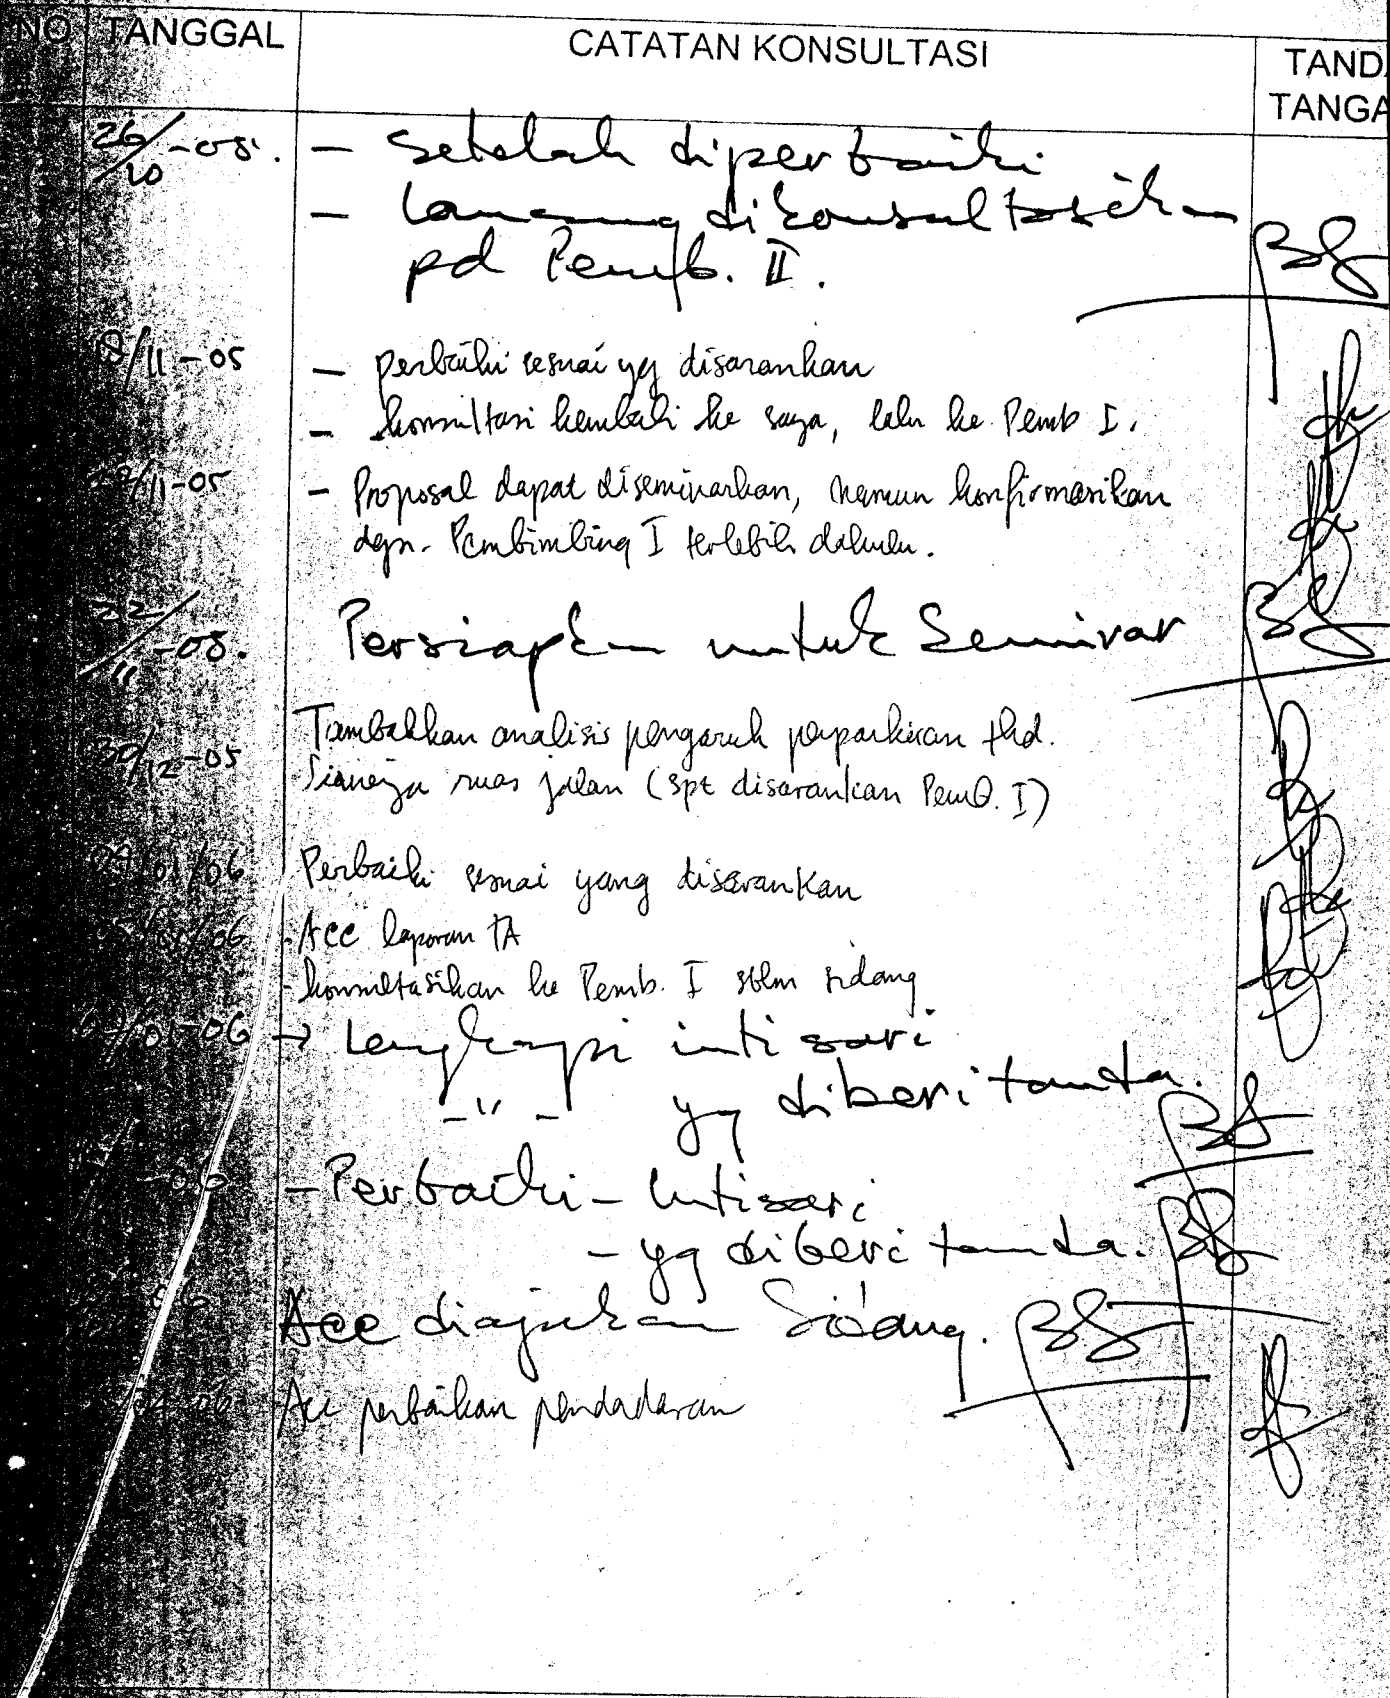 NO TANGGAL CATATAN KONSULTASI TANDA TANGA
26/10 -05. - Setelah diperbaiki
- langsung dikonsultasikan
pd Pemb. II.
/11-05 - perbaiki sesuai yg disarankan
- konsultasi kembali ke saya, lalu ke Pemb I.
/11-05 - Proposal dapat diseminarkan, namun konfirmasikan
dgn. Pembimbing I terlebih dahulu.
22/11 -05. Persiapkan untuk Seminar
30/12-05 Tambahkan analisis pengaruh perparkiran thd.
kinerja ruas jalan (spt disarankan Pemb. I)
/01/06 Perbaiki sesuai yang disarankan
/01/06 - Acc laporan TA
- konsultasikan ke Pemb. I sblm sidang
/01-06 → Lengkapi intisari
-"- yg diberi tanda.
-06 - Perbaiki - Intisari
- yg diberi tanda.
06 Acc diajukan Sidang.
-06 Acc perbaikan pendadaran